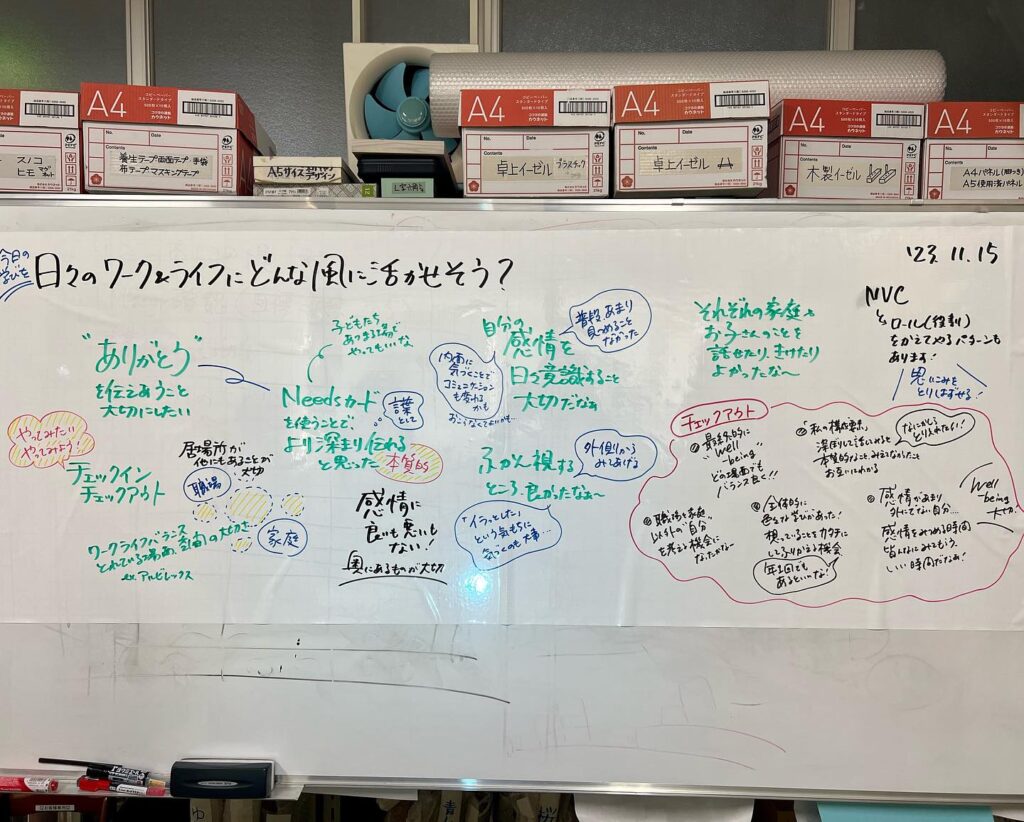 A4
コピーペーパー
スタンダードタイプ
カウネット
Contents
Date
スノコ
ヒモ
養生テープ 両面テープ 手袋
布テープ マスキングテープ
A5サイズ
デザイン
A4
カウネット
No.
Date
Contents
卓上イーゼル プラスチック
A4
カウネット
No.
Date
Contents
卓上イーゼル
A4
カウネット
No.
Date
Contents
木製イーゼル
A4
カウネット
No.
Contents
A4パネル(脚つき)
A5使用済パネル
今日の
学びを
日々のワーク&ライフにどんな風に活かせそう?
'23. 11. 15
"ありがとう"
を伝えあうこと
大切にしたい
やってみたい!!
やってみよう!
チェックイン
チェックアウト
居場所が
他にもあることが
大切
職場
家庭
ワークライフバランス
とれている場面、(空間)の大切さ
ex. アルビレックス
子どもたち
あつまる場で
やってもいいな
Needsカード
を使うことで、
より深まり伝わる
と思った
言葉
として
本質的
感情に
良いも悪いも
ない!
奥にあるものが大切
自分の
感情を
日々意識すること
大切だなぁ
普段、あまり
見つめること
なかった
内面に
気づくことで
コミュニケーション
も変わるかも
おこらなくてよいかも…
ふかん視する
ところ、良かったなぁ〜
外側から
みてあげる
「イラっとした」
という気もちに
気づくのも大事…
それぞれの家庭や
お子さんのことを
話せたり、きけたり
よかったな〜
NVC
と
ロール(役割)
をかえてやるパターンも
あります!
思いこみを
とりはずせる!
チェックアウト
最終的に
"Well
being"
どの場面でも
バランス良く!!
職場と家庭
以外の"自分"
を考える機会に
なったかな〜
「私の構成要素」
深ぼりして話してみると
本質的なこと、みえなかったこと
お互いわかる
なにかしら
とり入れたい!
全体的に
色々な学びがあった!
想っていることをカタチに
してふりかえる機会
年1回でも
あるといいな!
感情があまり
外にでない自分…
感情をみつめる時間
皆んなにみてもらう
いい時間だなぁ!
Well
being
大切